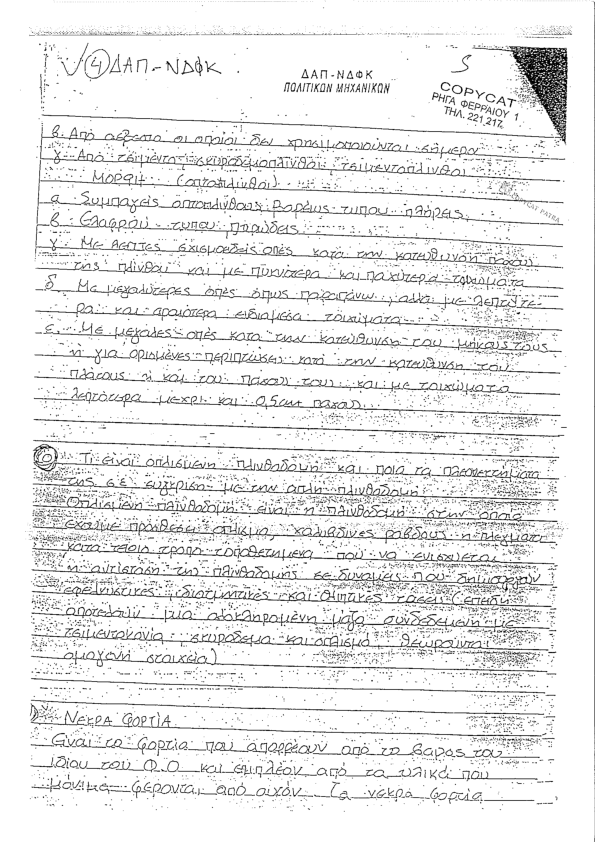 ✓ ④ ΔΑΠ-ΝΔΦΚ
ΔΑΠ-ΝΔΦΚ
ΠΟΛΙΤΙΚΩΝ ΜΗΧΑΝΙΚΩΝ
5
COPYCAT
ΡΗΓΑ ΦΕΡΡΑΙΟΥ 1
ΤΗΛ. 221.217
β. Από οι οποίοι δεν χρησιμοποιούνται σήμερα
γ. Από τσιμέντα, τσιμεντοπλινθοι
ΜΟΡΦΗ (οπτοπλινθοι)
α Συμπαγείς οπτοπλινθους βαρέως τυπου πλήρεις.
β Ελαφρού τυπου πορώδεις
γ. Με λεπτες σχισμοειδεις οπές κατα την κατευθυνση παχου
της πλίνθου και με πυκνότερα και παχύτερα τοιχωματα
δ. Με μεγαλύτερες οπές οπως παραπάνω, αλλα με λεπτότε-
ρα και αραιότερα ενδιαμεσα τοιχώματα
ε. Με μεγάλες οπές κατα την κατεύθυνση του μήκους τους
ή για ορισμένες περιπτώσεις κατά την κατευθυνση του
πλάτους ή και του παχου τους, και με τοιχώματα
λεπτότερα μεχρι και 0,5cm παχου.
⑥ Τι είναι οπλισμενη πλινθοδομη και ποια τα πλεονεκτήματα
της σε συγκριση με την απλη πλινθοδομή
Οπλισμενη πλινθοδομη ειναι η πλινθοδομη στην οποια
εχουμε προσθέσει οπλισμο, χαλυβδινες ραβδους η πλεγματα
κατα τετοιο τροπο τοποθετημενα που να ενισχυεται
η αντίσταση της πλινθοδομης σε δυναμεις που δημιουργουν
εφελκυστικες, διατμητικες και θλιπτικες τασεις (επειδη
αποτελουν μια ολοκληρωμένη μαζα συνδεδεμενη με
τσιμεντοκονια, σκυροδεμα και οπλισμό θεωρουνται
ομογενή στοιχεία)
ΝΕΚΡΑ ΦΟΡΤΙΑ
Είναι τα φορτία που απορρέουν από το βαρος του
ιδίου του Φ.Ο και επιπλέον από τα υλικά που
μόνιμα φέρονται από αυτόν. Τα νεκρά φορτία